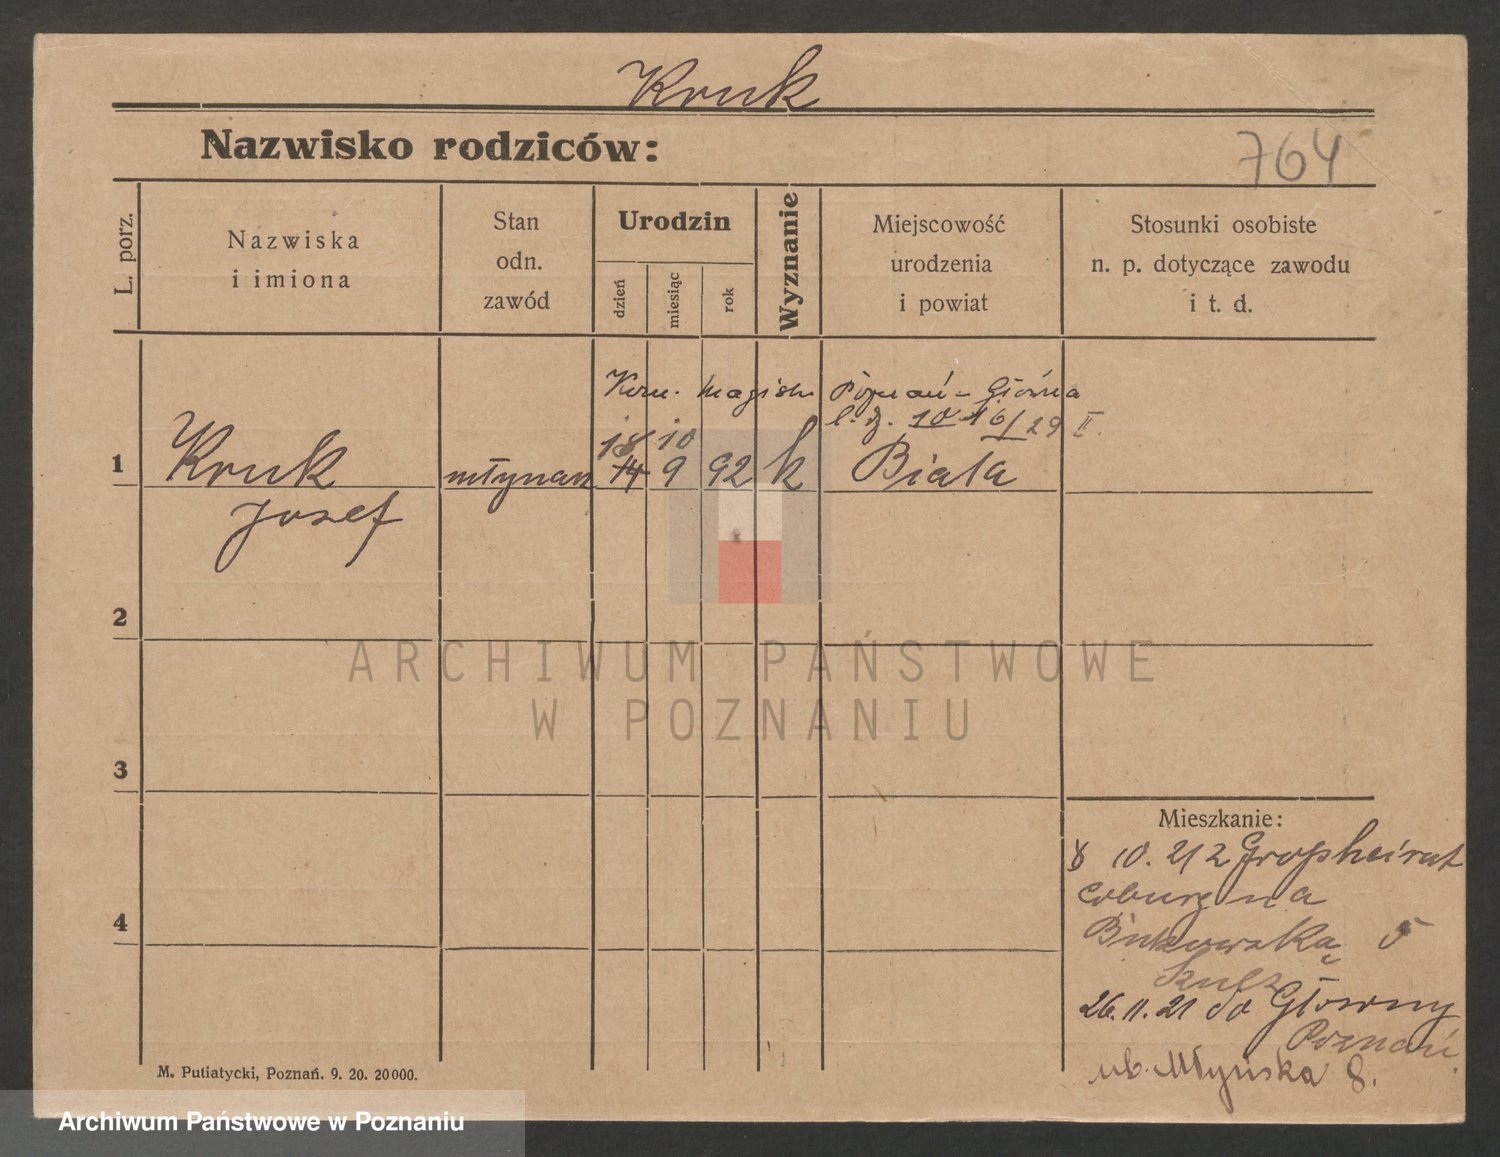 Kruk
Nazwisko rodziców:
764
L. porz.
Nazwiska
i imiona
Stan
odn.
zawód
Urodzin
dzień
miesiąc
rok
Wyznanie
Miejscowość
urodzenia
i powiat
Stosunki osobiste
n. p. dotyczące zawodu
i t. d.
Kom. Magistr. Poznań - Główna
l. dz. 10 16/29 II.
18 10
1 Kruk młynarz 14 9 92 k Biała
Josef
2
ARCHIWUM PAŃSTWOWE
W POZNANIU
3
Mieszkanie:
8 10. 21 z Grossheirat
Coburg na
4
Bukowską 5
Kulz
26. 11. 21 do Główny
Poznań.
ul. Młyńska 8.
M. Putiatycki, Poznań. 9. 20. 20000.
Archiwum Państwowe w Poznaniu